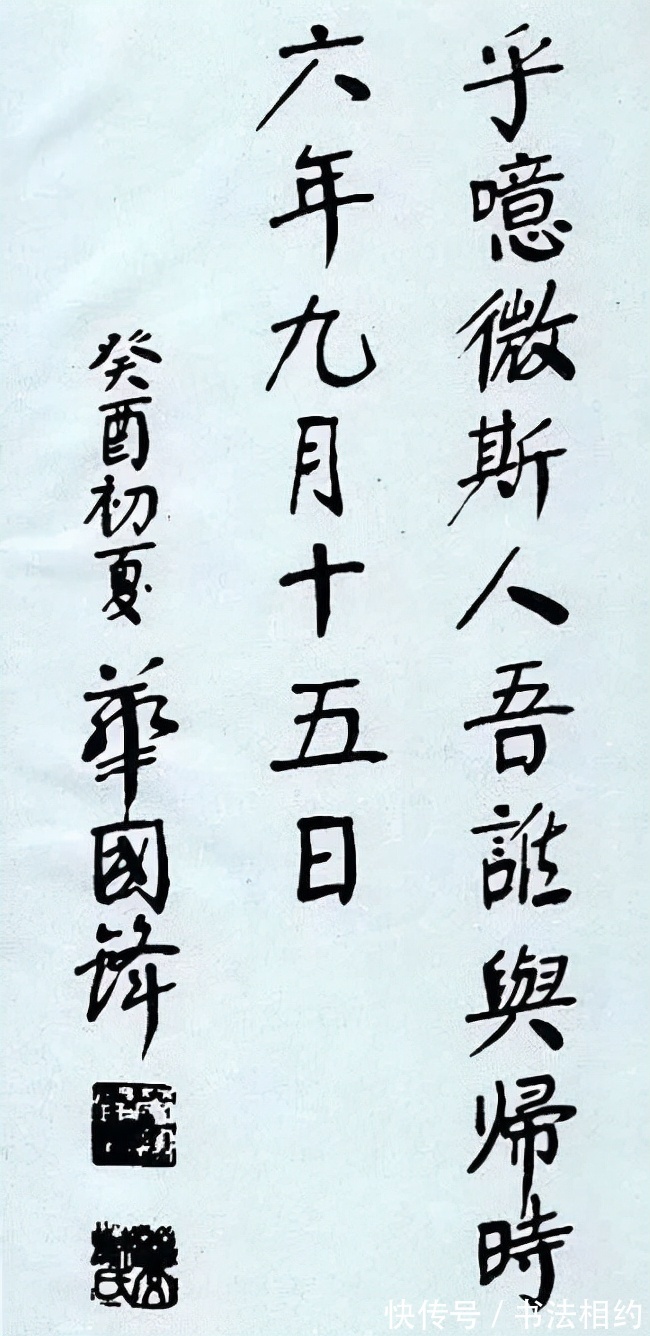 乎噫微斯人吾誰與帰時
六年九月十五日
癸酉初夏 華國鋒
快传号 / 书法相约